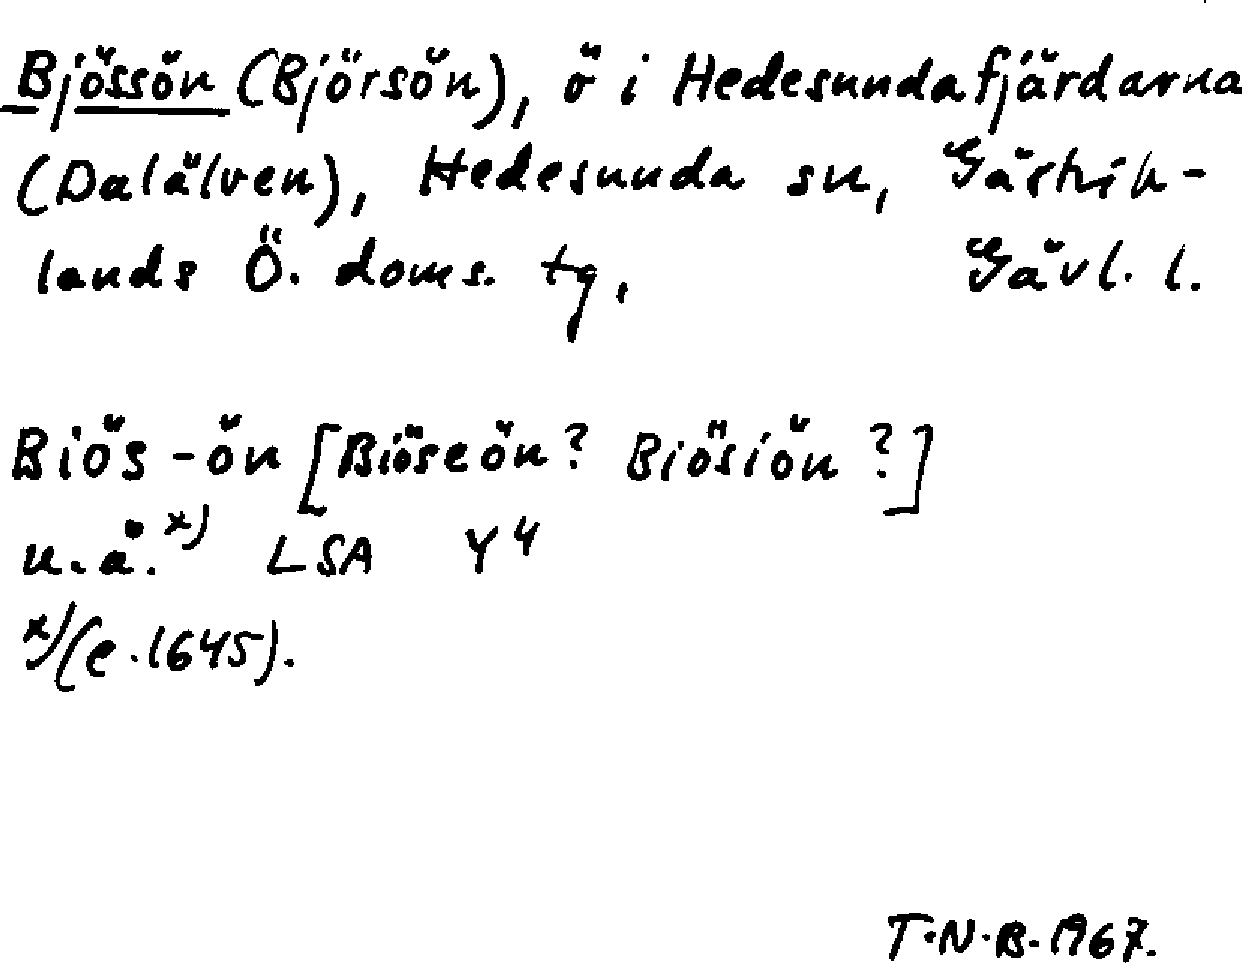 Bjössön (Björsön), ö i Hedesundafjärdarna
(Dalälven), Hedesunda sn, Gästrik-
lands Ö. doms. tg, Gävl. l.
Biös-ön [Biöseön? Biösiön?]
u.å.x) LSA Y4
x)(c.1645).
T.N.B. 1967.